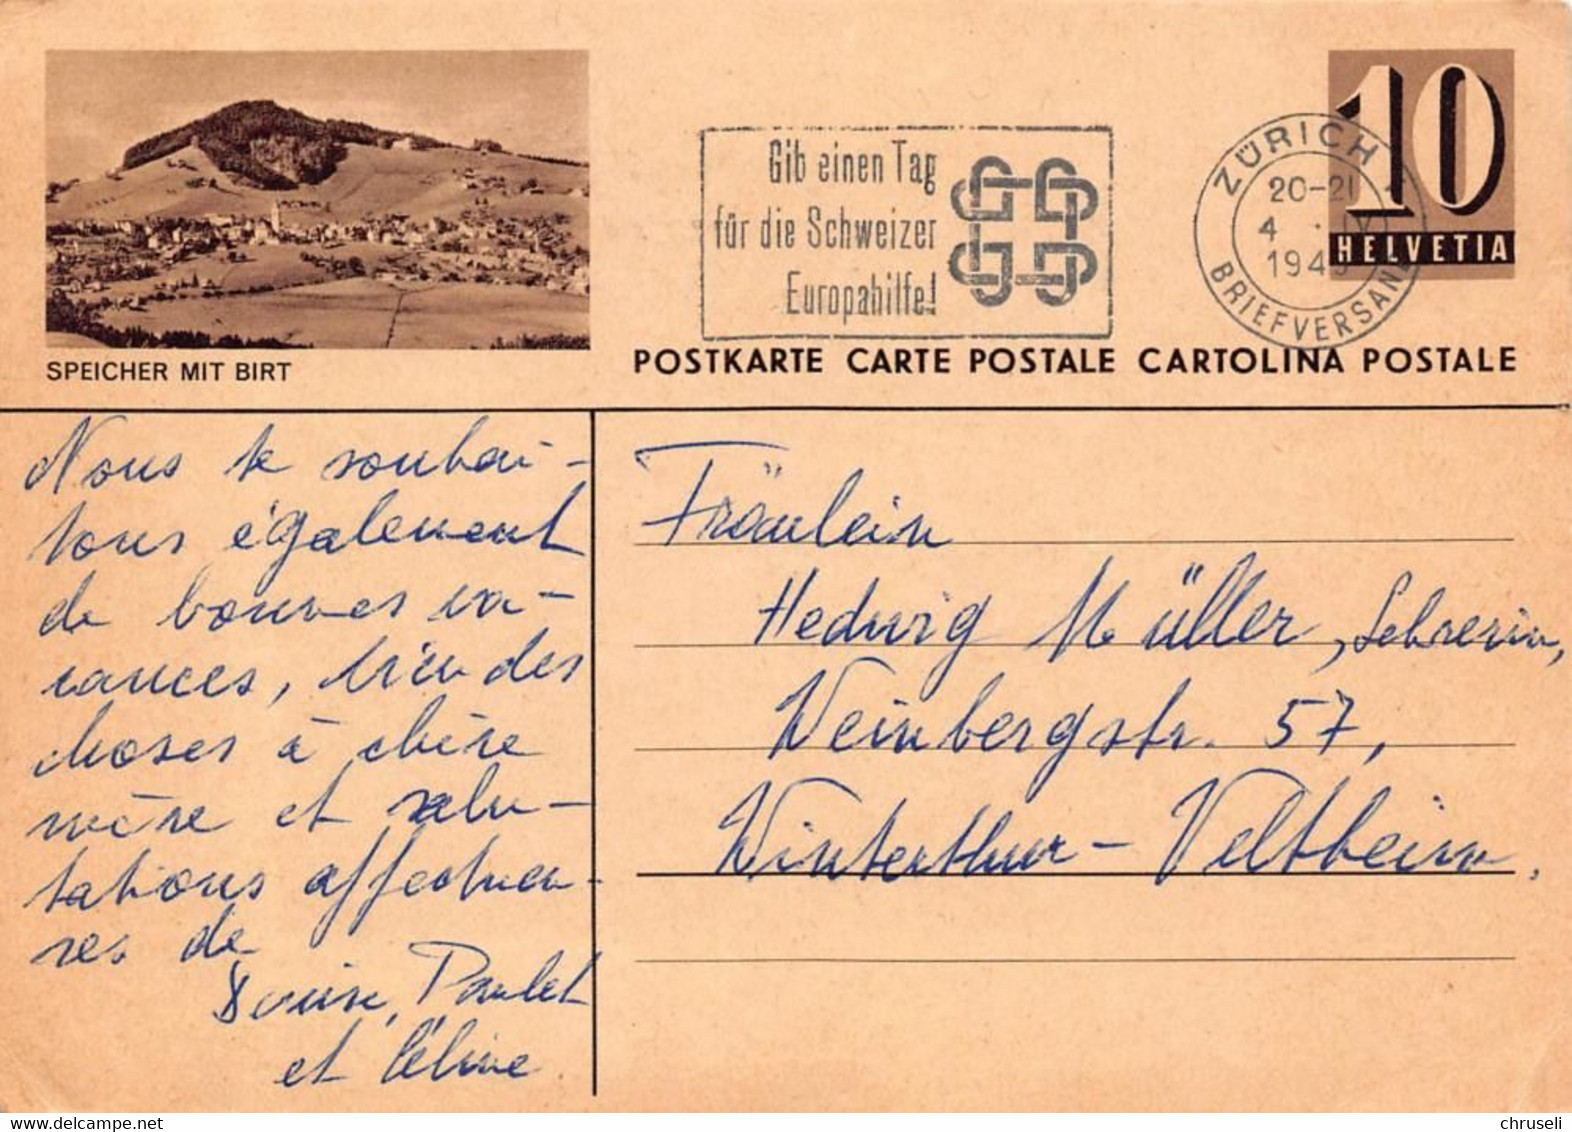 SPEICHER MIT BIRT
Gib einen Tag
für die Schweizer
Europahilfe!
ZÜRICH 1
20-21
4. IV
194
BRIEFVERSAND
10
HELVETIA
POSTKARTE CARTE POSTALE CARTOLINA POSTALE
Nous te souhai-
tons également
de bonnes va-
cances, bien des
choses à chère
mère et salu-
tations affectueu-
ses de
Louise, Paulet
et Céline
Fräulein
Hedwig Müller, Lehrerin,
Weinbergstr. 57,
Winterthur-Veltheim.
chruseli